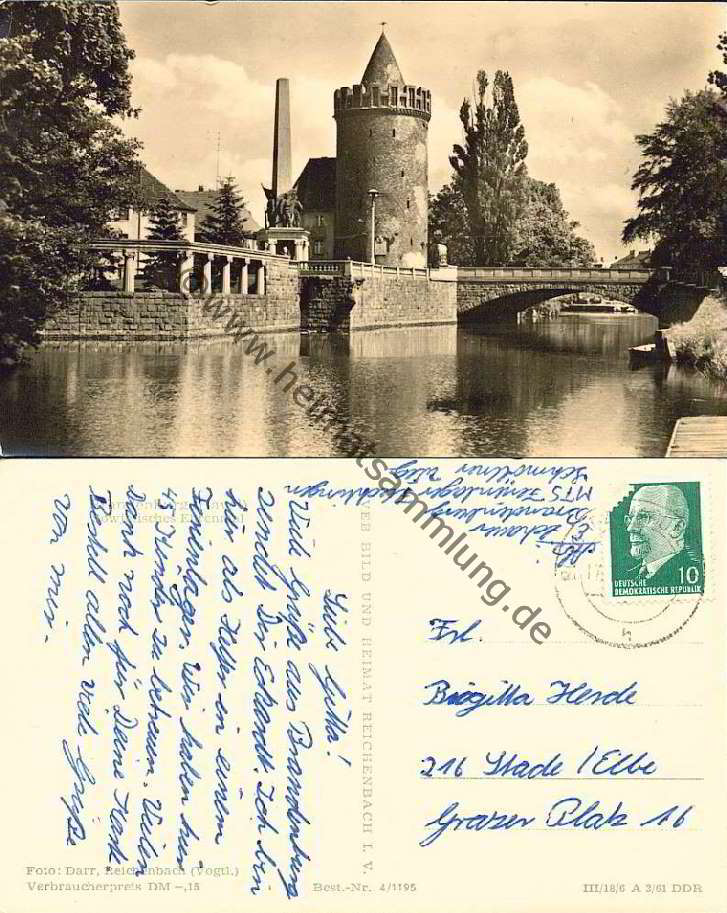 © www.heimatsammlung.de
Liebe Gitta!
Viele Grüße aus Brandenburg
sendet Dir Eckardt. Ich bin
hier als Helfer in einem
Ferienlager. Wir haben hier
Kinder zu betreuen. Vielen
Dank noch für Deine Karte
Bestell allen viele Grüße
von mir.
Brandenburg
MTS Ferienlager
VEB BILD UND HEIMAT REICHENBACH I. V.
DEUTSCHE
DEMOKRATISCHE REPUBLIK
10
Frl.
Birgitta Herde
216 Stade / Elbe
Grazer Platz 16
Foto: Darr, Reichenbach (Vogtl.)
Verbraucherpreis DM -,15
Best.-Nr. 4/1195
III/18/6 A 3/61 DDR